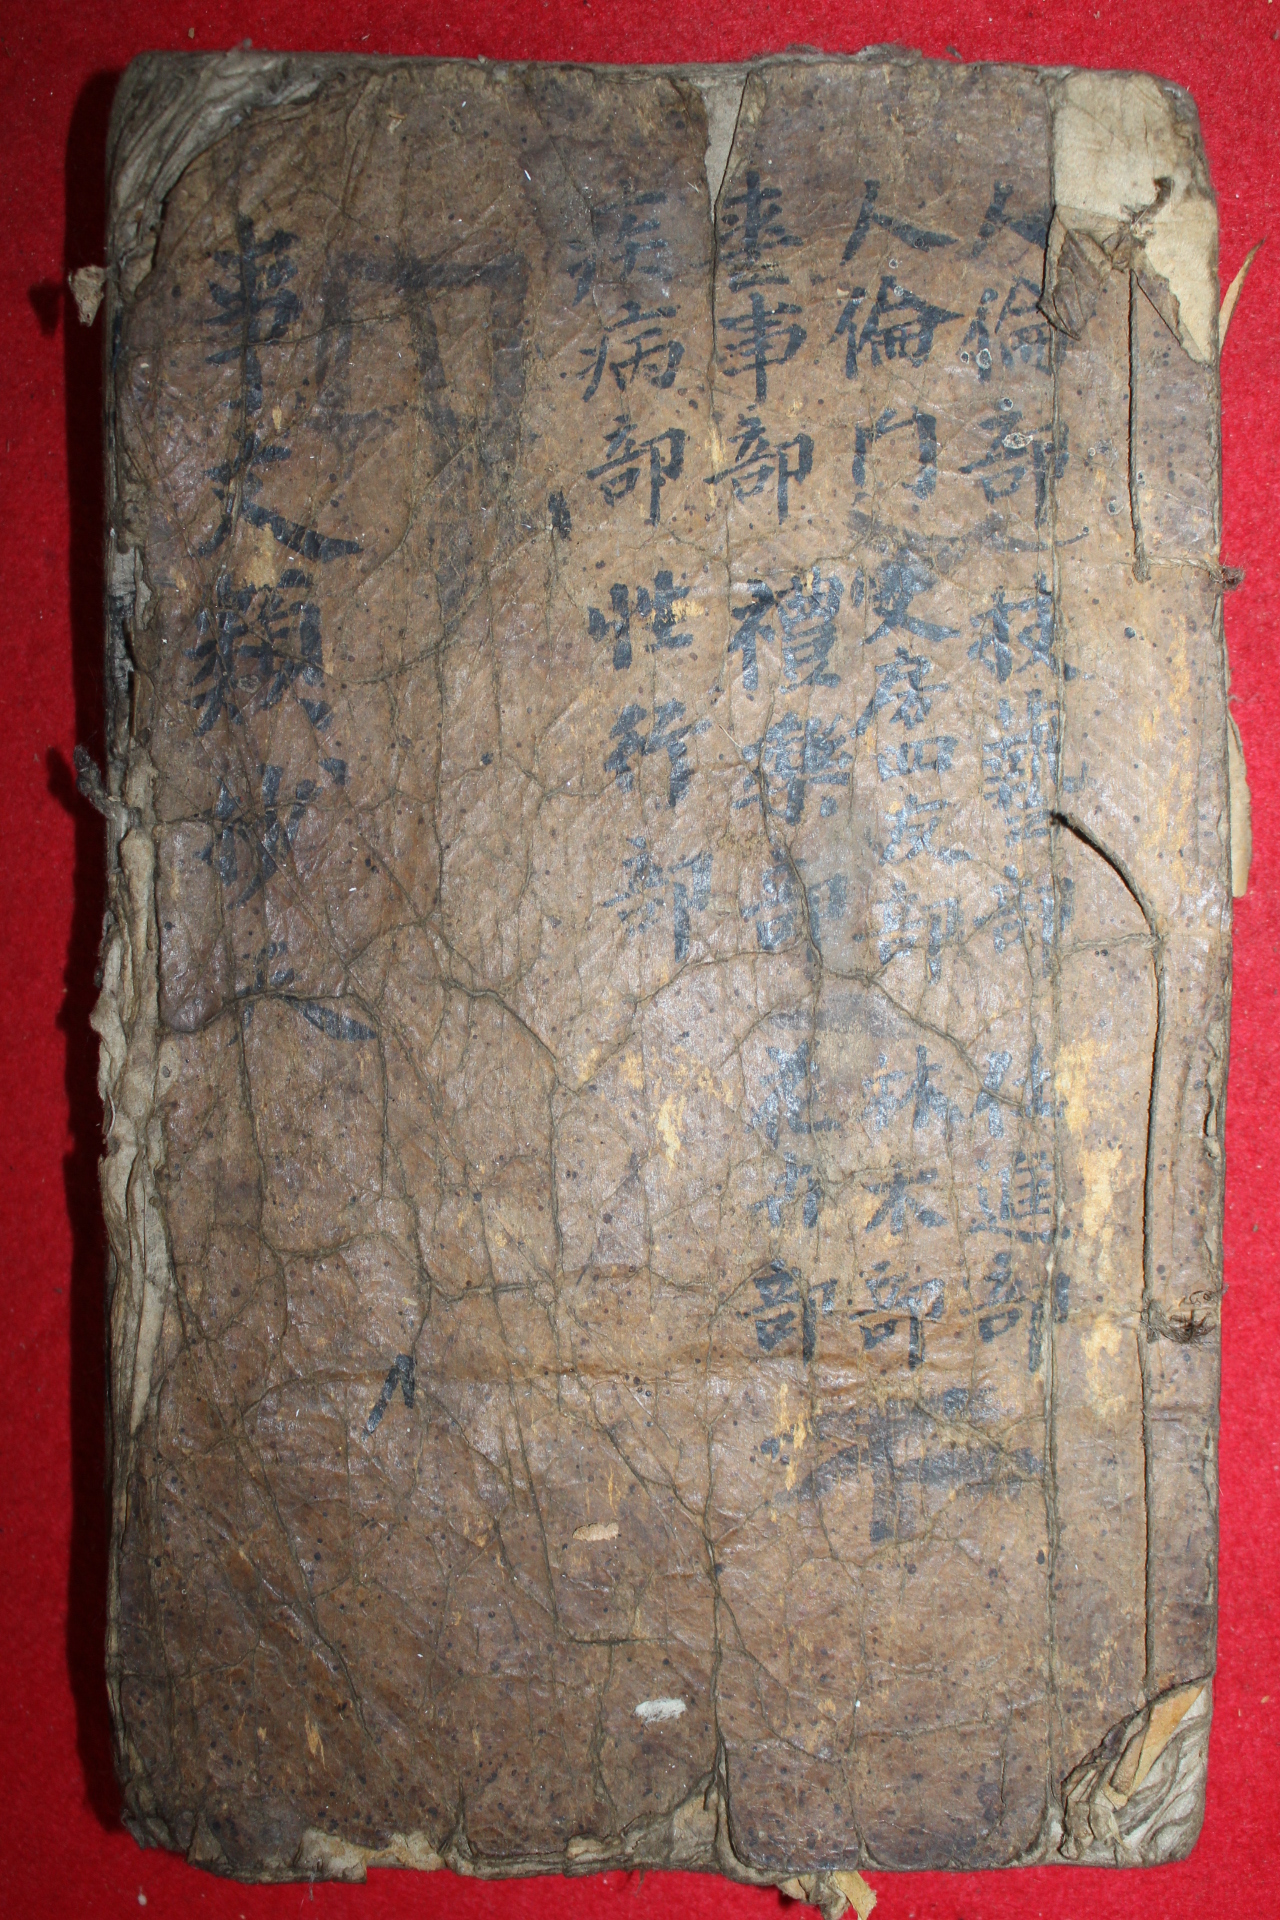 人倫部 技藝部 仕進部
人倫門 文房四友部 部
喪事部 禮樂部 花卉部
疾病部 性行部
事文類抄